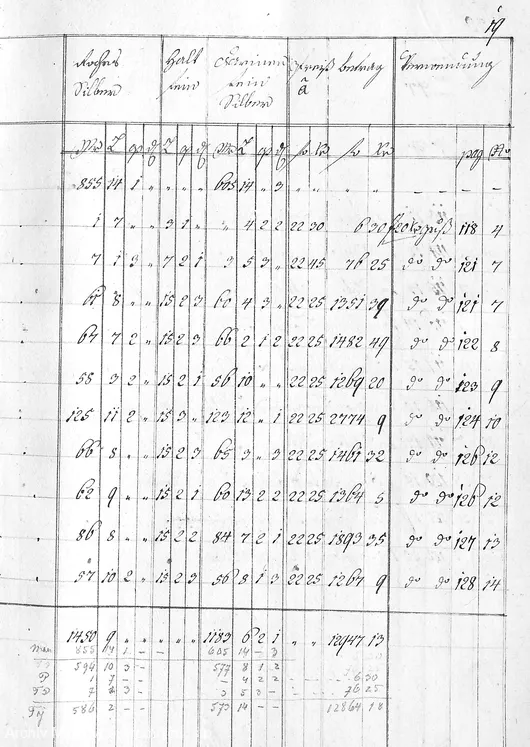 19
Rohes Silber | Halt fein | fein Silber | Preiß à | betrag | Verwendung
Mr L q d | L q d | Mr L q d | fo Xr | fo Xr | pag No
855 14 1 " | " " " | 605 14 " 3 | " " | " " | – – –
1 7 " " | 3 1 " | " 4 2 2 | 22 30 | 6 30 | 118 4
7 1 3 " | 7 2 1 | 3 5 3 " | 22 45 | 76 25 | do do 121 7
65 8 " " | 15 2 3 | 60 4 3 " | 22 25 | 1351 39 | do do 121 7
67 7 2 " | 15 2 3 | 66 2 1 2 | 22 25 | 1482 49 | do do 122 8
58 3 2 " | 15 2 1 | 56 10 " " | 22 25 | 1269 20 | do do 123 9
125 11 2 " | 15 3 " | 123 12 " 1 | 22 25 | 2774 9 | do do 124 10
66 8 " " | 15 2 3 | 65 3 " 3 | 22 25 | 1461 32 | do do 126 12
62 9 " " | 15 2 1 | 60 13 2 2 | 22 25 | 1364 5 | do do 126 12
86 8 " " | 15 2 2 | 84 7 2 1 | 22 25 | 1893 35 | do do 127 13
57 10 2 " | 15 2 3 | 56 8 1 3 | 22 25 | 1267 9 | do do 128 14
1450 9 " " | " " " | 1183 6 2 1 | " " | 12947 13
855 14 1 – | 605 14 – 3
594 10 3 – | 577 8 1 2
1 7 – – | – 4 2 2 | 6 30
7 1 3 – | 3 5 3 – | 76 25
586 2 – – | 573 14 – – | 12864 18